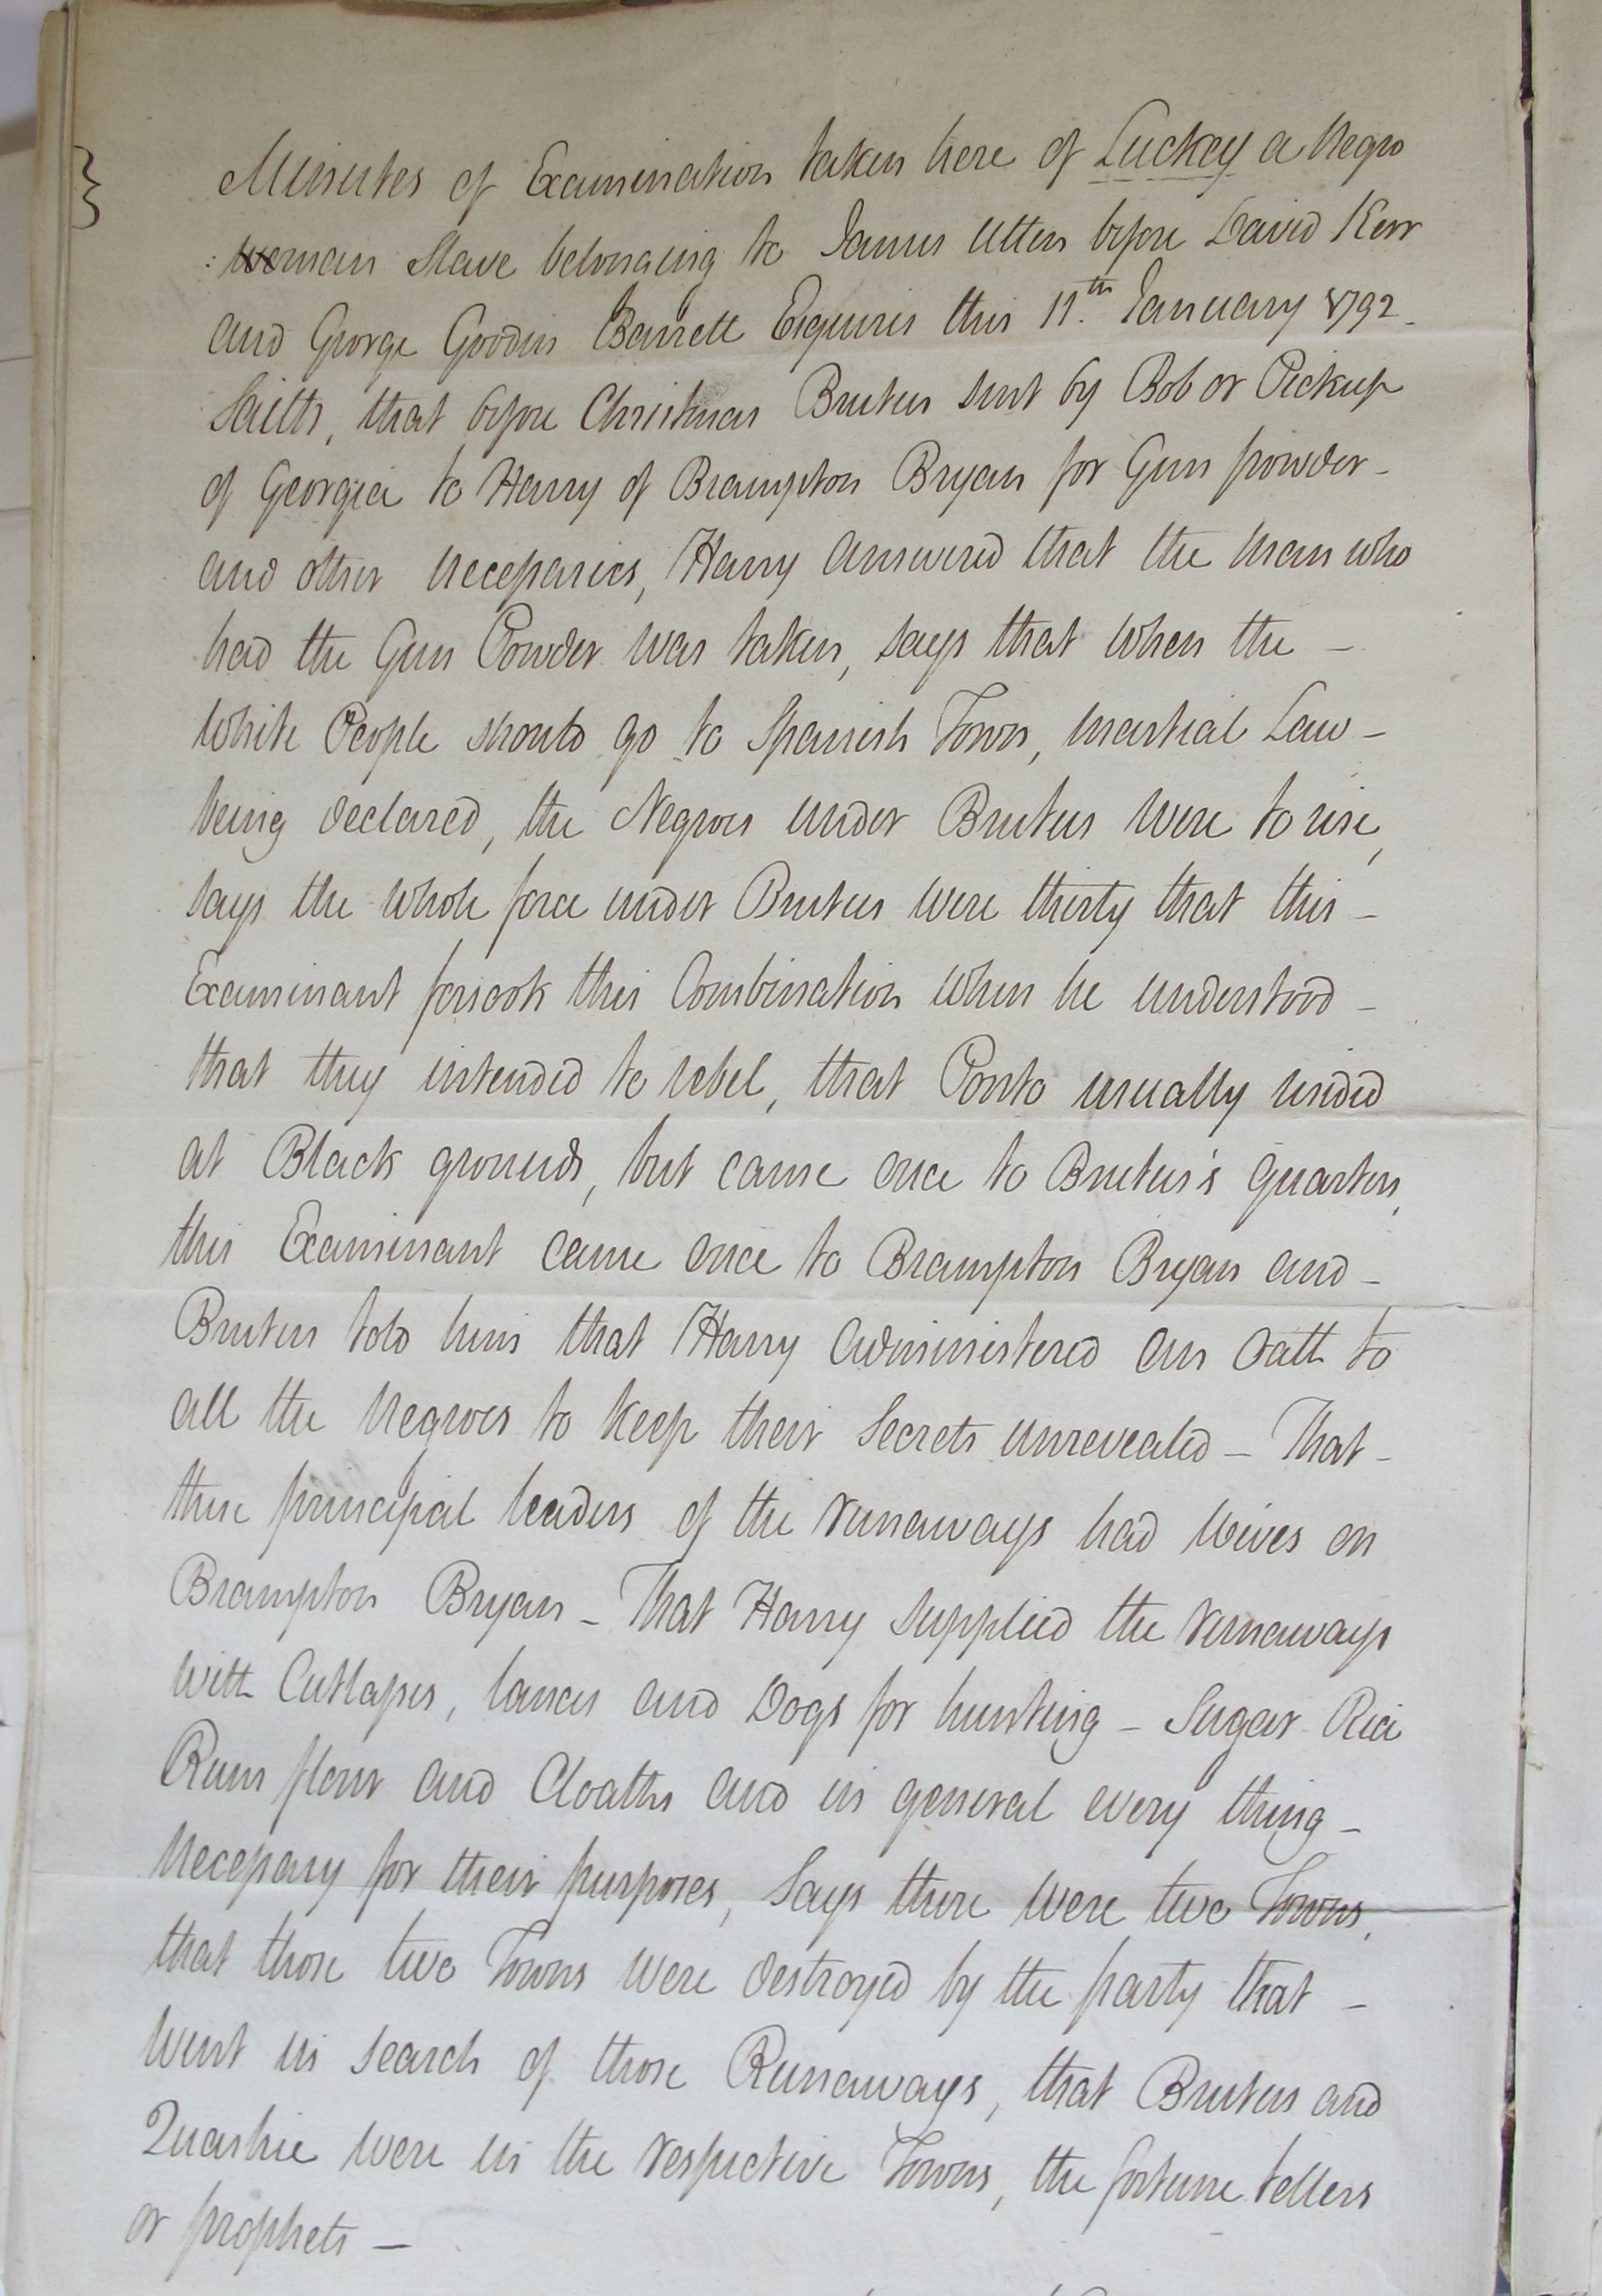 Minutes of Examination taken here of Luckey a Negro
: woman Slave belonging to James Utten before David Kerr
and George Goodin Barrett Esquires this 11.th January 1792
Saith, that before Christmas Brutus sent by Bob or Pickup
of Georgia to Harry of Brampton Bryan for Gun powder -
and other necessaries, Harry answered that the man who
had the Gun Powder was taken, says that when the -
White People should go to Spanish Town, martial Law -
being declared, the Negroes under Brutus were to rise,
says the whole force under Brutus were thirty that this -
Examinant forsook this Combination when he understood -
that they intended to rebel, that Ponto usually resided
at Black grounds, but came once to Brutus's quarters,
this Examinant came once to Brampton Bryan and -
Brutus told him that Harry administered an Oath to
all the Negroes to keep their Secrets unrevealed - That -
these principal leaders of the runaways had wives on
Brampton Bryan - That Harry supplied the runaways
with Cutlasses, lances and Dogs for hunting - Sugar Rice
Rum flour and Cloaths and in general every thing -
necessary for their purposes, Says there were two Towns,
that those two Towns were destroyed by the party that -
went in search of those Runaways, that Brutus and
Quashie were in the respective Towns, the fortune tellers
or prophets -